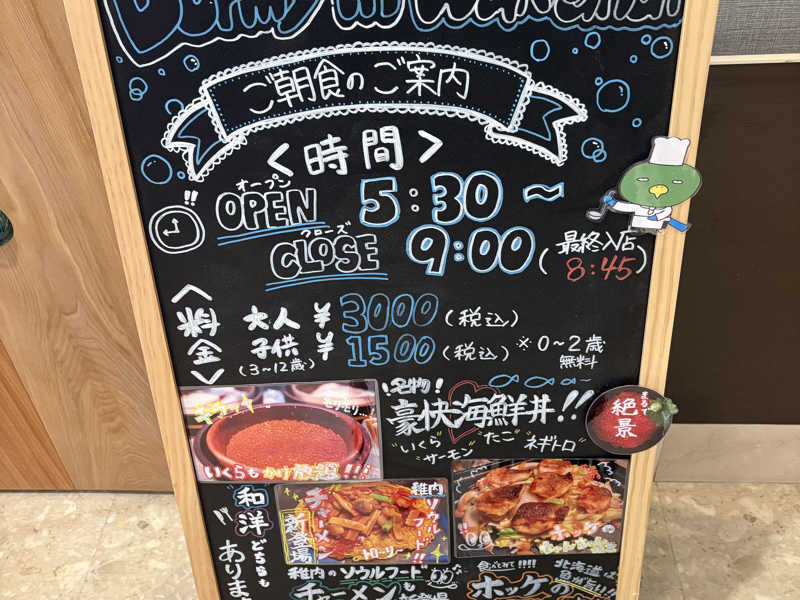 Dormy inn Wakkanai
ご朝食のご案内
<時間>
オープン
OPEN 5:30~
クローズ
CLOSE 9:00 (最終入店 8:45)
<料金>
大人 ¥3000(税込)
子供 ¥1500(税込) ※0~2歳 無料
(3~12歳)
!名物!
豪快海鮮丼!!
"いくら "たこ" ネギトロ"
サーモン
まるで 絶景
いくらもかけ放題!!!
和洋どちらも
あります
チャーメン
新登場
稚内ソウルフード!!
トローリ~
稚内のソウルフード
チャーメンも
食べてみて!!!!
ホッケの
北海道は
魚がいい!